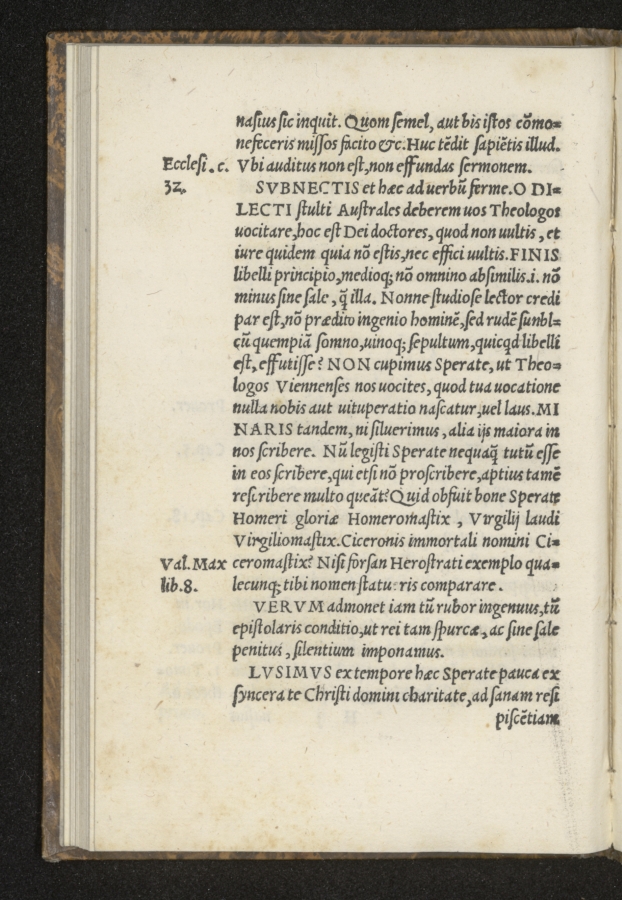 nasius sic inquit. Quom semel, aut bis istos cõmo=
nefeceris missos facito &c. Huc tẽdit sapiẽtis illud.
Ecclesi. c. 32. Vbi auditus non est, non effundas sermonem.
SVBNECTIS et hæc ad uerbũ ferme. O DI=
LECTI stulti Australes deberem uos Theologos
uocitare, hoc est Dei doctores, quod non uultis, et
iure quidem quia nõ estis, nec effici uultis. FINIS
libelli principio, medioq; nõ omnino absimilis .i. nõ
minus sine sale, q̃ illa. Nonne studiose lector credi
par est, nõ prædito ingenio hominẽ, sed rudẽ
cũ quempiã somno, uinoq; sepultum, quicqd libelli
est, effutisse? NON cupimus Sperate, ut Theo=
logos Viennenses nos uocites, quod tua uocatione
nulla nobis aut uituperatio nascatur, uel laus. MI
NARIS tandem, ni siluerimus, alia ijs maiora in
nos scribere. Nũ legisti Sperate nequaq̃ tutũ esse
in eos scribere, qui etsi nõ proscribere, aptius tamẽ
rescribere multo queãt? Quid obfuit bone Sperate
Homeri gloriæ Homeromastix, Virgilij laudi
Virgiliomastix. Ciceronis immortali nomini Ci=
Val. Max lib. 8. ceromastix? Nisi forsan Herostrati exemplo qua=
lecunq; tibi nomen statueris comparare.
VERVM admonet iam tũ rubor ingenuus, tũ
epistolaris conditio, ut rei tam spurcæ, ac sine sale
penitus, silentium imponamus.
LVSIMVS ex tempore hæc Sperate pauca ex
syncera te Christi domini charitate, ad sanam resi
piscẽtiam